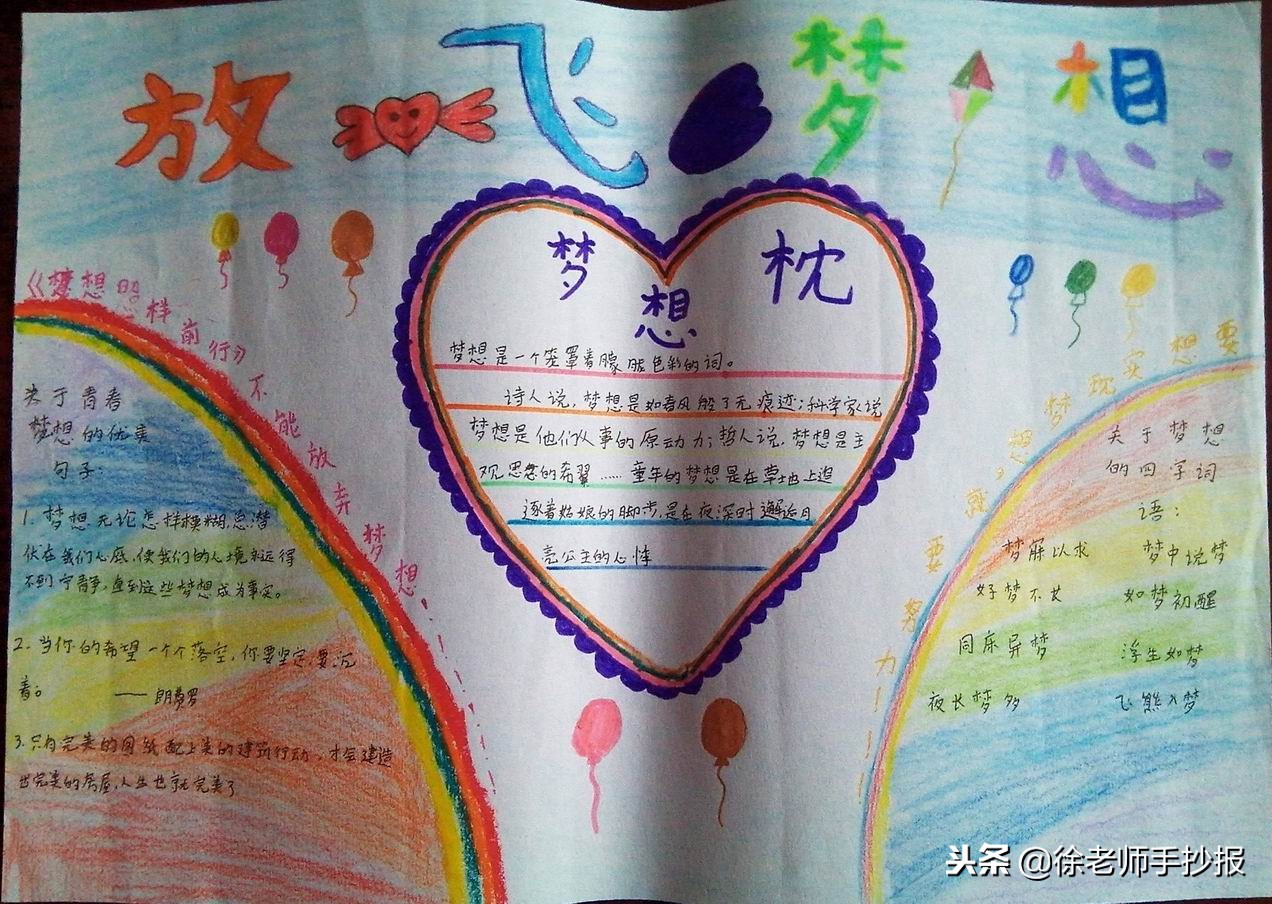 放飞梦想
梦想枕
梦想是一个笼罩着朦胧色彩的词。
诗人说,梦想是如春风般了无痕迹;科学家说
梦想是他们从事的原动力;哲人说,梦想是主
观思想的希翼……童年的梦想是在草地上追
逐着姑娘的脚步,是在夜深时邂逅月
亮公主的心悸
《梦想照样前行》不能放弃梦想
关于青春
梦想的优美
句子:
1. 梦想无论怎样模糊,总潜
伏在我们心底,使我们的心境永远得
不到宁静,直到这些梦想成为事实。
2. 当你的希望一个个落空,你要坚定,要沉
着。 ——朗费罗
3. 只有完美的图纸配上美的建筑行动,才会建造
出完美的房屋,人生也就完美了
想要实现梦想,就要努力———
关于梦想
的四字词
语:
梦寐以求 梦中说梦
好梦不长 如梦初醒
同床异梦 浮生如梦
夜长梦多 飞熊入梦
头条 @徐老师手抄报